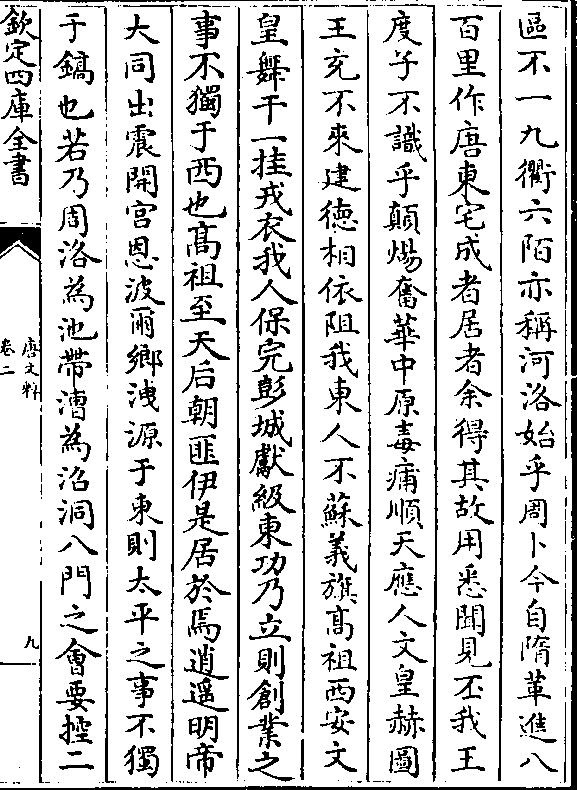 區不一九衢六陌亦稱河洛始乎周卜今自隋革進八
百里作唐東宅成者居者余得其故用悉聞見丕我王
度子不識乎顛煬奮華中原毒痡順天應人文皇赫圖
王充不來建德相依阻我東人不蘇義旗髙祖西安文
皇舞干一挂戎衣我人保完彭城獻級東功乃立則創業之
事不獨于西也髙祖至天后朝匪伊是居於焉逍遥明帝
大同出震開宫恩波爾鄉洩源于東則太平之事不獨
于鎬也若乃周洛為池帶漕為沼洞八門之會要控二
欽定四庫全書
唐文粹
卷二
九